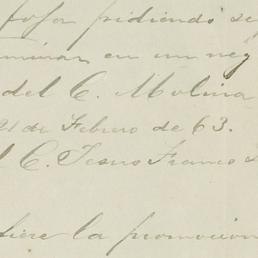 fofa pidiendo se
minar en un neg
del C. Molina
21 de Febrero de 63.
l C. Jesus Franco
fiere la promocion